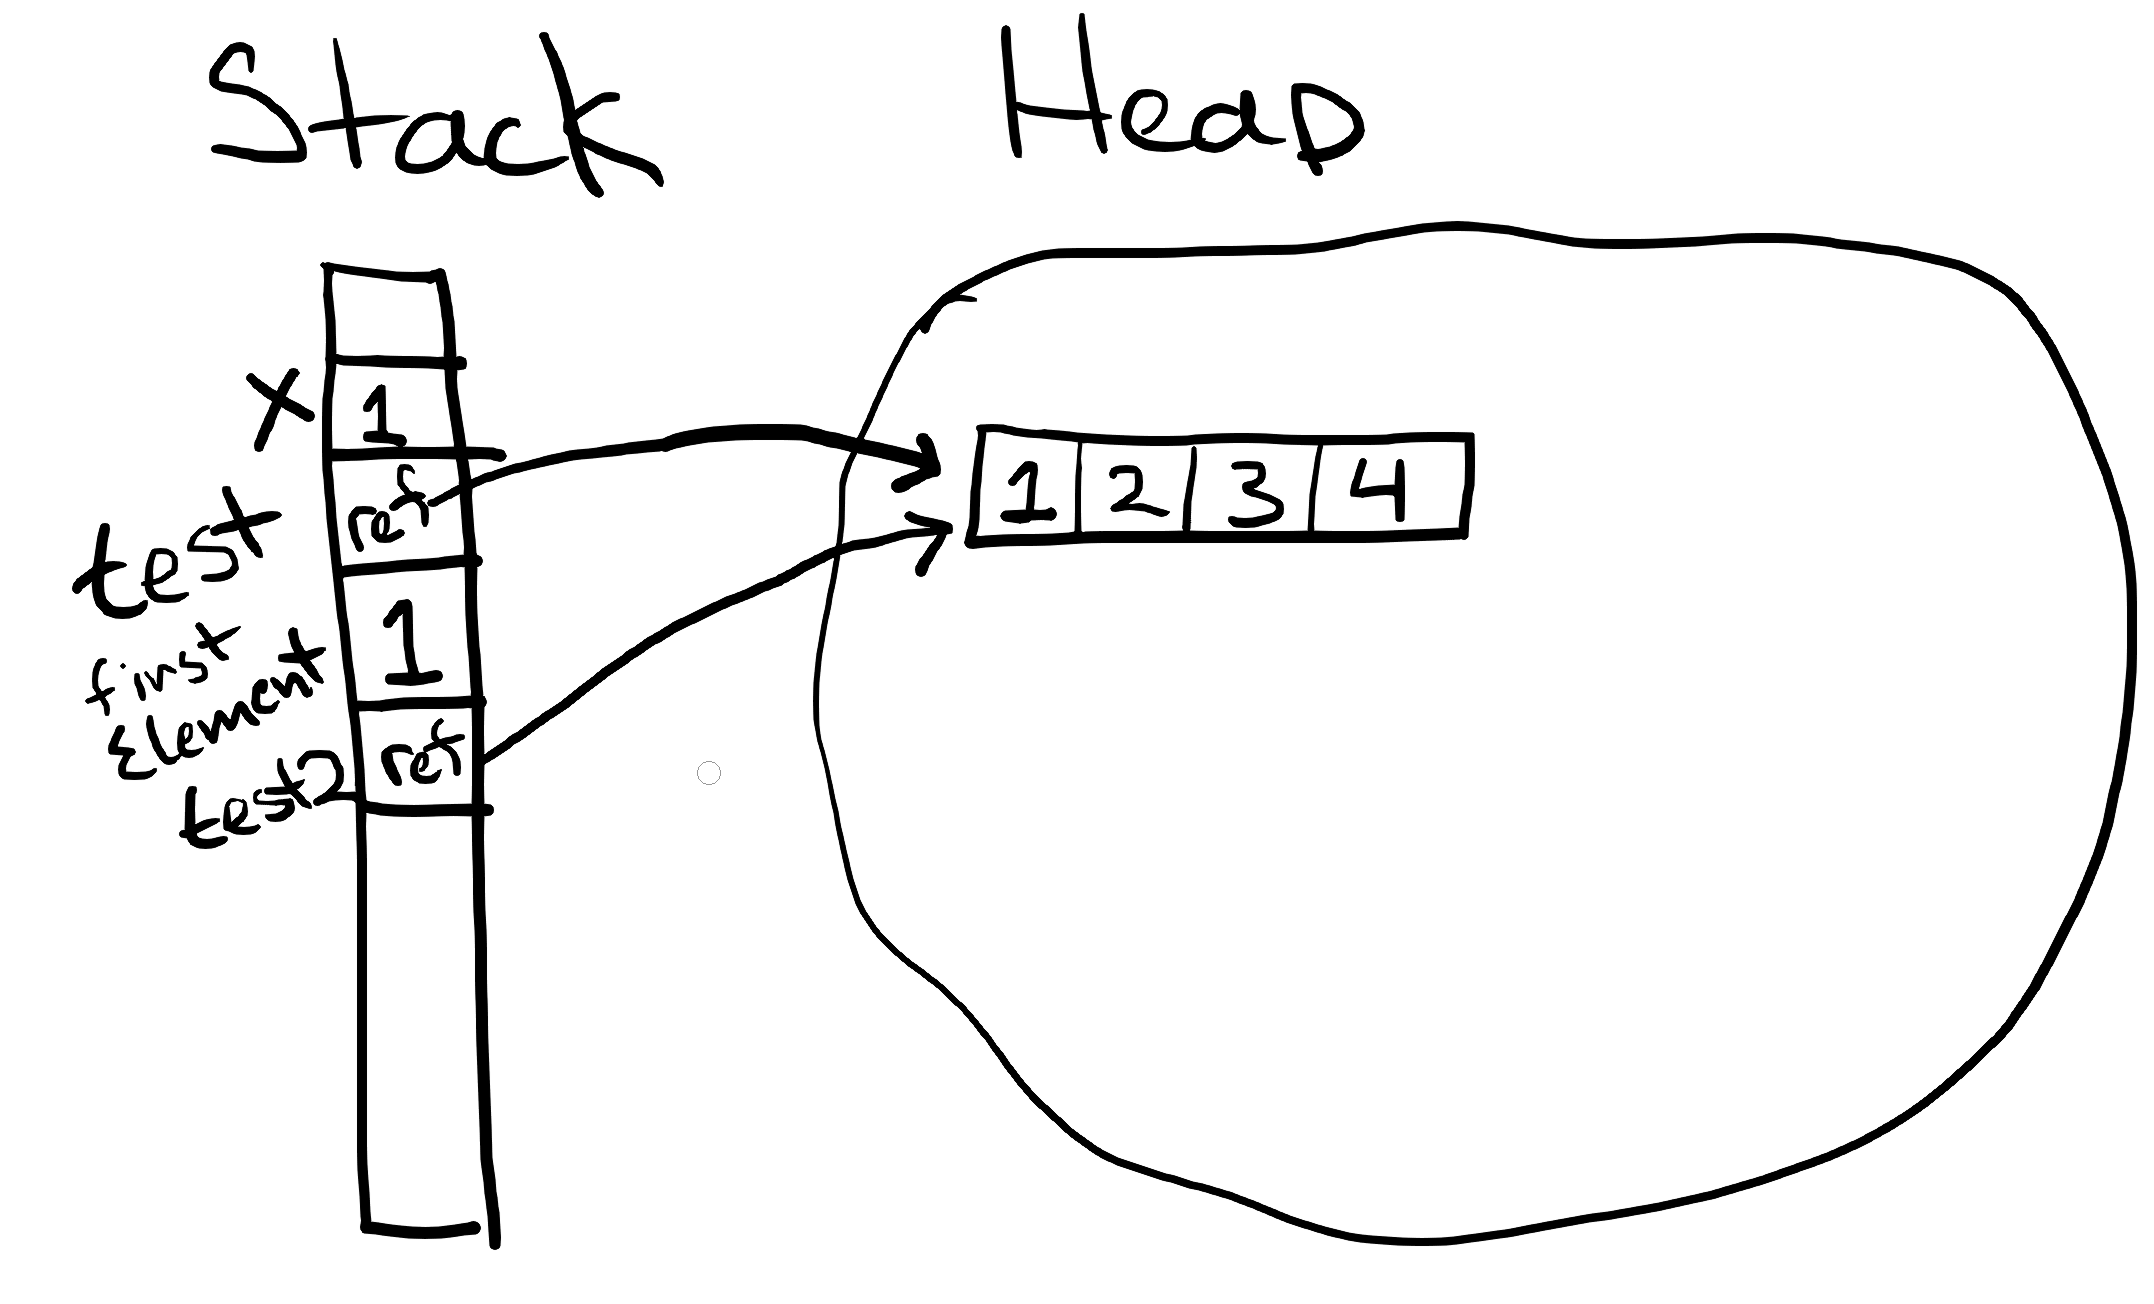 Stack
Heap
x 1
test ref
1 2 3 4
first
Element
1
test2 ref